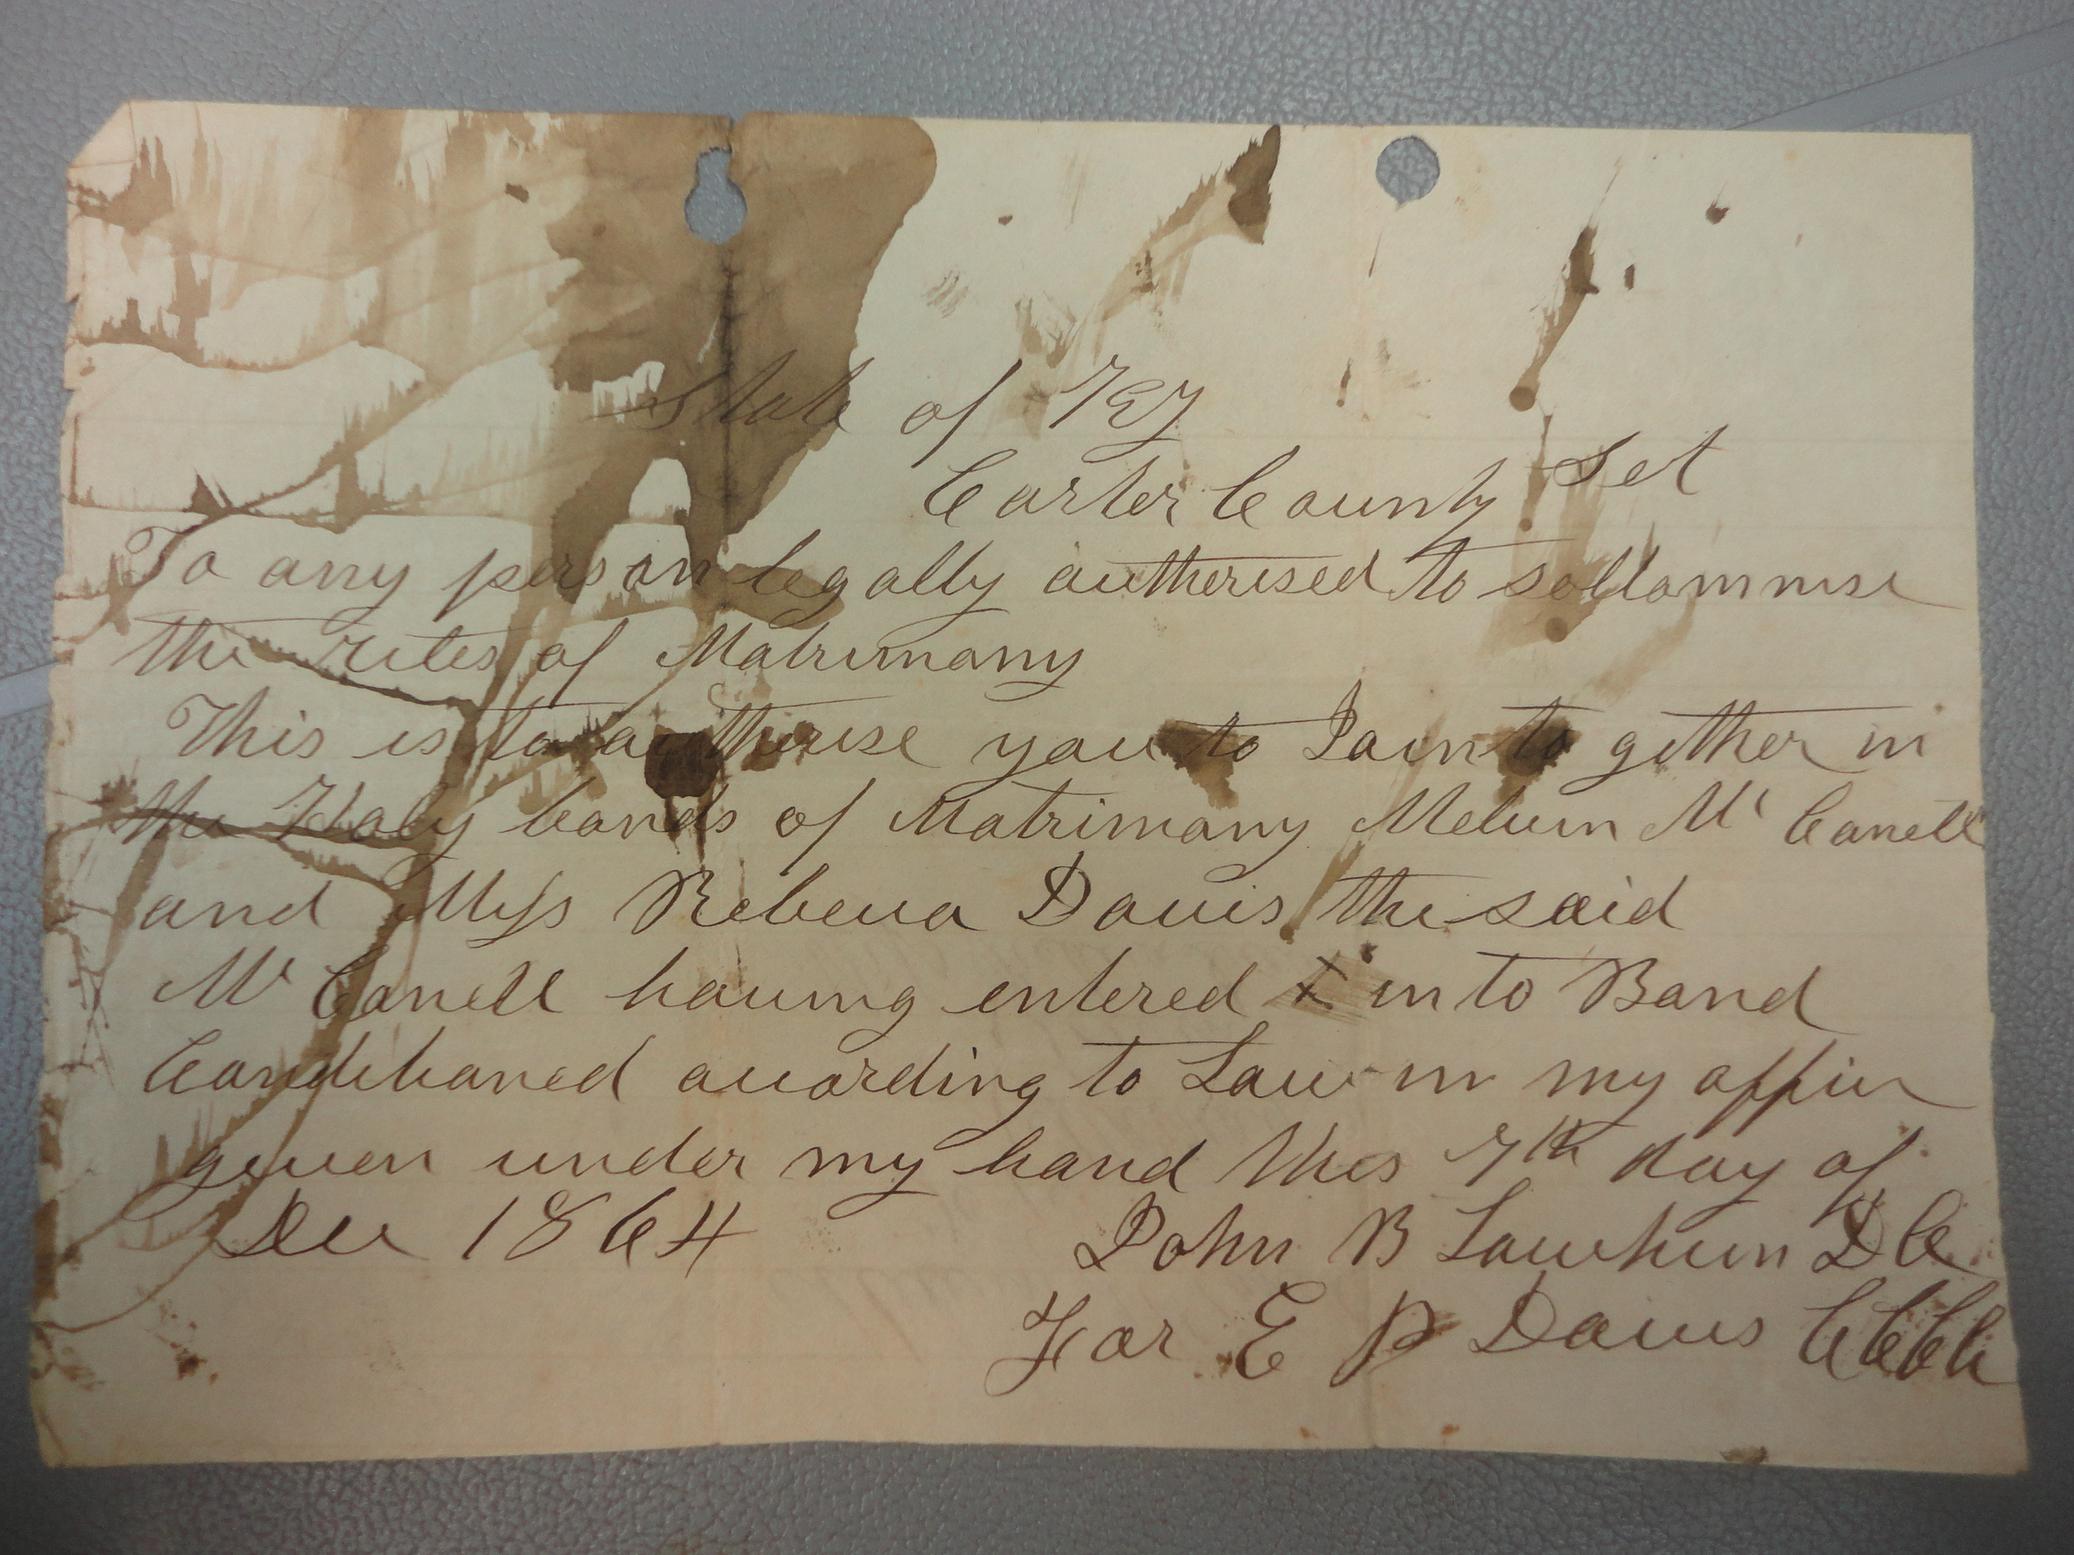 State of KY
Carter County Sct
To any person legally autherised to sollomnise
the rites of Matrimony
This is to autherise you to Join to gether in
the Holy bonds of Matrimony Melvin Mc Canell
and Miss Rebecca Davis the said
Mc Canell having entered in to Bond
Conditioned according to Law in my office
given under my hand this 7th day of
Dec 1864 John B Lawhun D C
For E P Davis C C C C